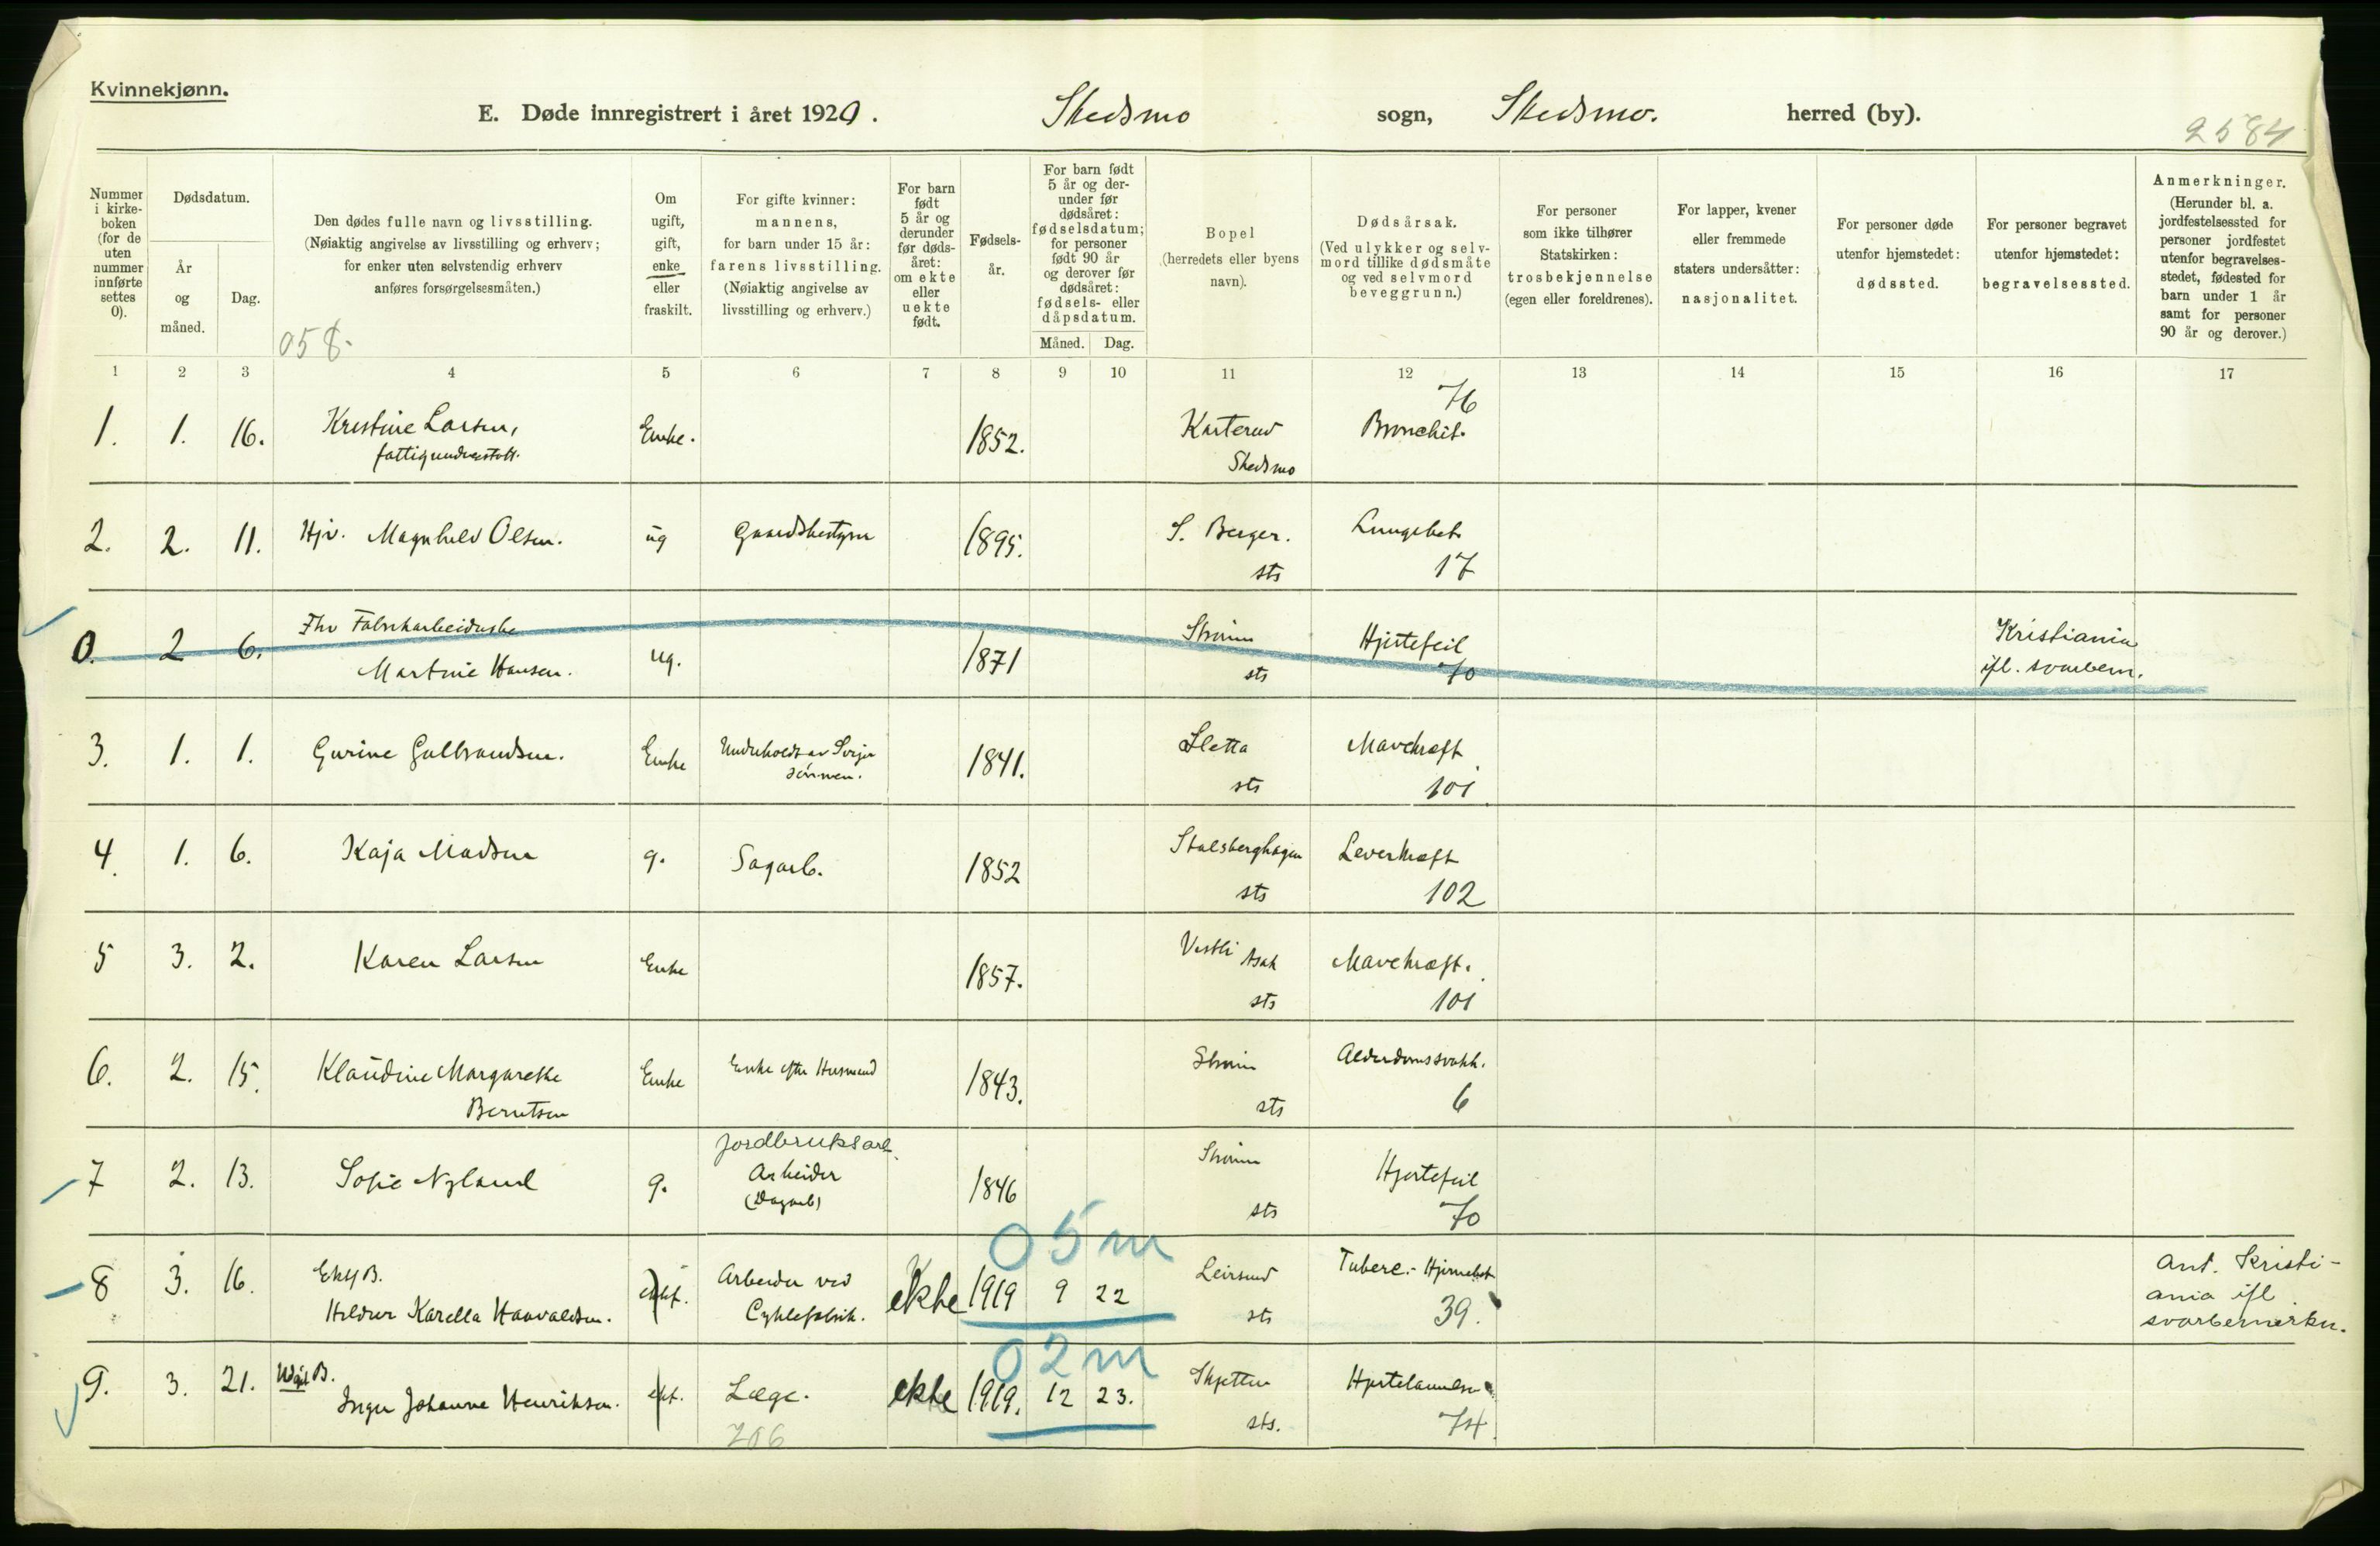 Kvinnekjønn.
E. Døde innregistrert i året 1920. Skedsmo sogn, Skedsmo. herred (by).
2584
Nummer i kirke-boken (for de uten nummer innførte settes 0).
Dødsdatum.
År og måned.
Dag.
Den dødes fulle navn og livsstilling.
(Nøiaktig angivelse av livsstilling og erhverv;
for enker uten selvstendig erhverv
anføres forsørgelsesmåten.)
058.
Om ugift, gift, enke eller fraskilt.
For gifte kvinner:
mannens,
for barn under 15 år:
farens livsstilling.
(Nøiaktig angivelse av
livsstilling og erhverv.)
For barn født 5 år og derunder før døds-året: om ekte eller uekte født.
Fødsels-år.
For barn født 5 år og der-under før dødsåret: fødselsdatum; for personer født 90 år og derover før dødsåret: fødsels- eller dåpsdatum.
Måned. Dag.
Bopel
(herredets eller byens
navn).
Dødsårsak.
(Ved ulykker og selv-
mord tillike dødsmåte
og ved selvmord
beveggrunn.)
For personer
som ikke tilhører
Statskirken:
trosbekjennelse
(egen eller foreldrenes).
For lapper, kvener
eller fremmede
staters undersåtter:
nasjonalitet.
For personer døde
utenfor hjemstedet:
dødssted.
For personer begravet
utenfor hjemstedet:
begravelsessted.
Anmerkninger.
(Herunder bl. a.
jordfestelsessted for
personer jordfestet
utenfor begravelses-
stedet, fødested for
barn under 1 år
samt for personer
90 år og derover.)
1 2 3 4 5 6 7 8 9 10 11 12 13 14 15 16 17
76
1. 1. 16. Kristine Larsen, Enke. 1852. Karterud Bronchit.
fattigunderstøtt. Skedsmo
2. 2. 11. Hjv. Magnhild Olsen. ug Gaardsbestyrer 1895. S. Berger. Lungebet.
sts 17
0. 2 6. Fhv Fabrikarbeiderske Strøm Hjertefeil Kristiania
Martine Hansen. ug. 1871 sts 70 ifl. svarbem.
3. 1. 1. Gurine Gulbrandsen. Enke Underholdt av Sviger 1841. Sletta Mavekræft
sønnen. sts 101
4. 1. 6. Kaja Madsen g. Sagarb. 1852 Stalsberghagen Leverkræft
sts 102
5 3. 2. Karen Larsen Enke 1857. Vestli Asak Mavekræft.
sts 101
6. 2. 15. Klaudine Margarethe Enke Enke efter Husmand 1843. Strøm Alderdomssvakh.
Berntsen sts 6
Jordbruksarb.
7 2. 13. Sofie Nyland g. Arbeider 1846 Strøm Hjertefeil
(Dagarb) sts 70
05m
8 3. 16. Ekt B. ekt. Arbeider ved ekte 1919 9 22 Leirsund Tuberc.-Hjernebet. Ant. Kristi-
Hildur Karella Haavaldsen. Cyklefabrik. sts 39. ania ifl
svarbemerkn.
02m
9. 3. 21. Udøpt B. ekt. Læge. ekte 1919. 12 23. Skjetten Hjertelammelse
Inger Johanne Henriksen. sts. 74.
706